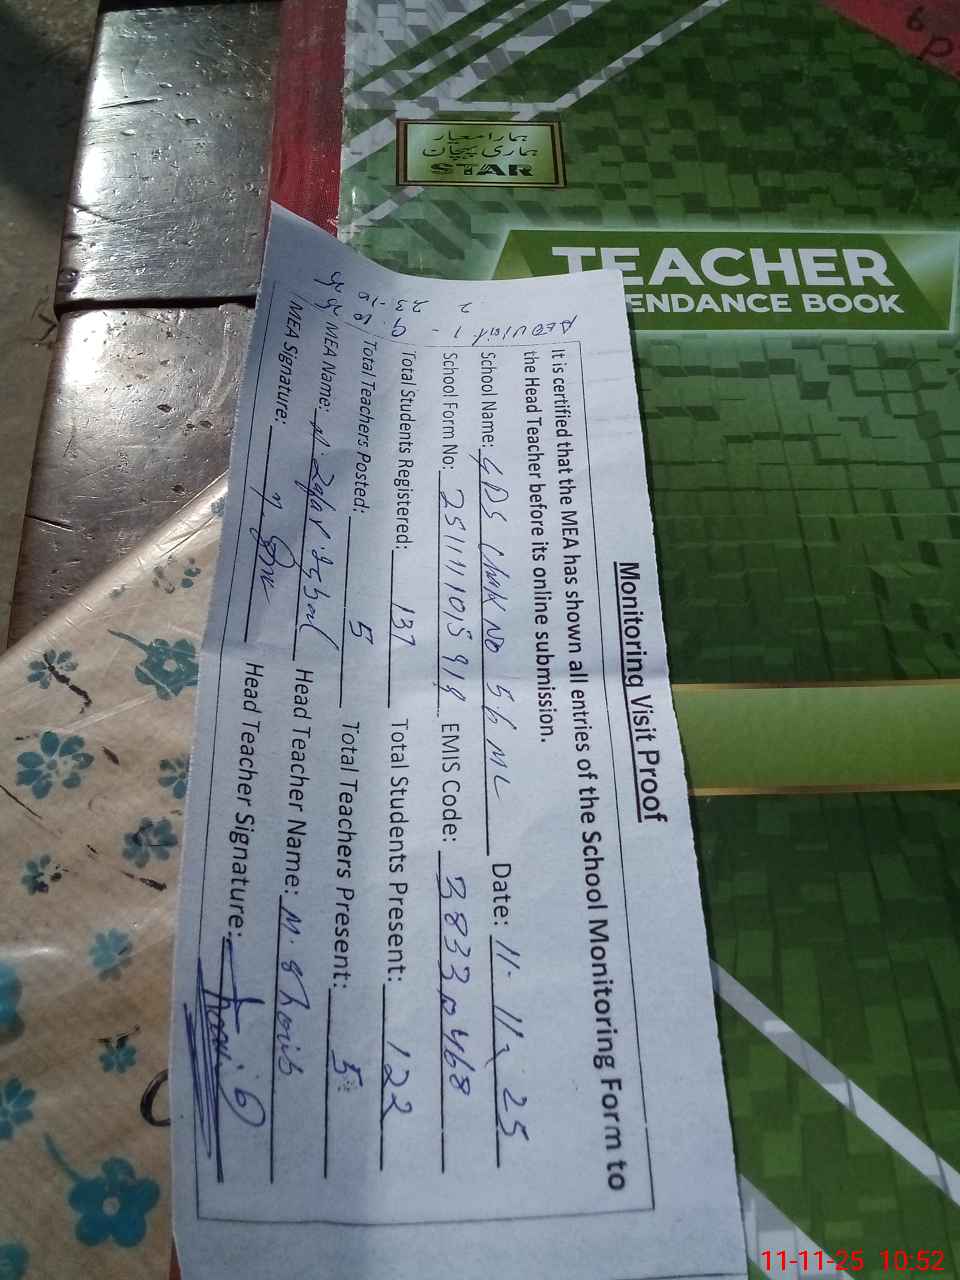 ہمارا معیار
ہماری پہچان
STAR
TEACHER
ENDANCE BOOK
Monitoring Visit Proof
It is certified that the MEA has shown all entries of the School Monitoring Form to
the Head Teacher before its online submission.
School Name: GPS Chak No 56 ML Date: 11-11-25
School Form No: 25111101 EMIS Code: 38330468
Total Students Registered: 137 Total Students Present: 122
Total Teachers Posted: 5 Total Teachers Present: 5
MEA Name: M. Zafar Iqbal Head Teacher Name: M. Shoaib
MEA Signature: Head Teacher Signature: Shoaib
AEO Visit
11-11-25 10:52